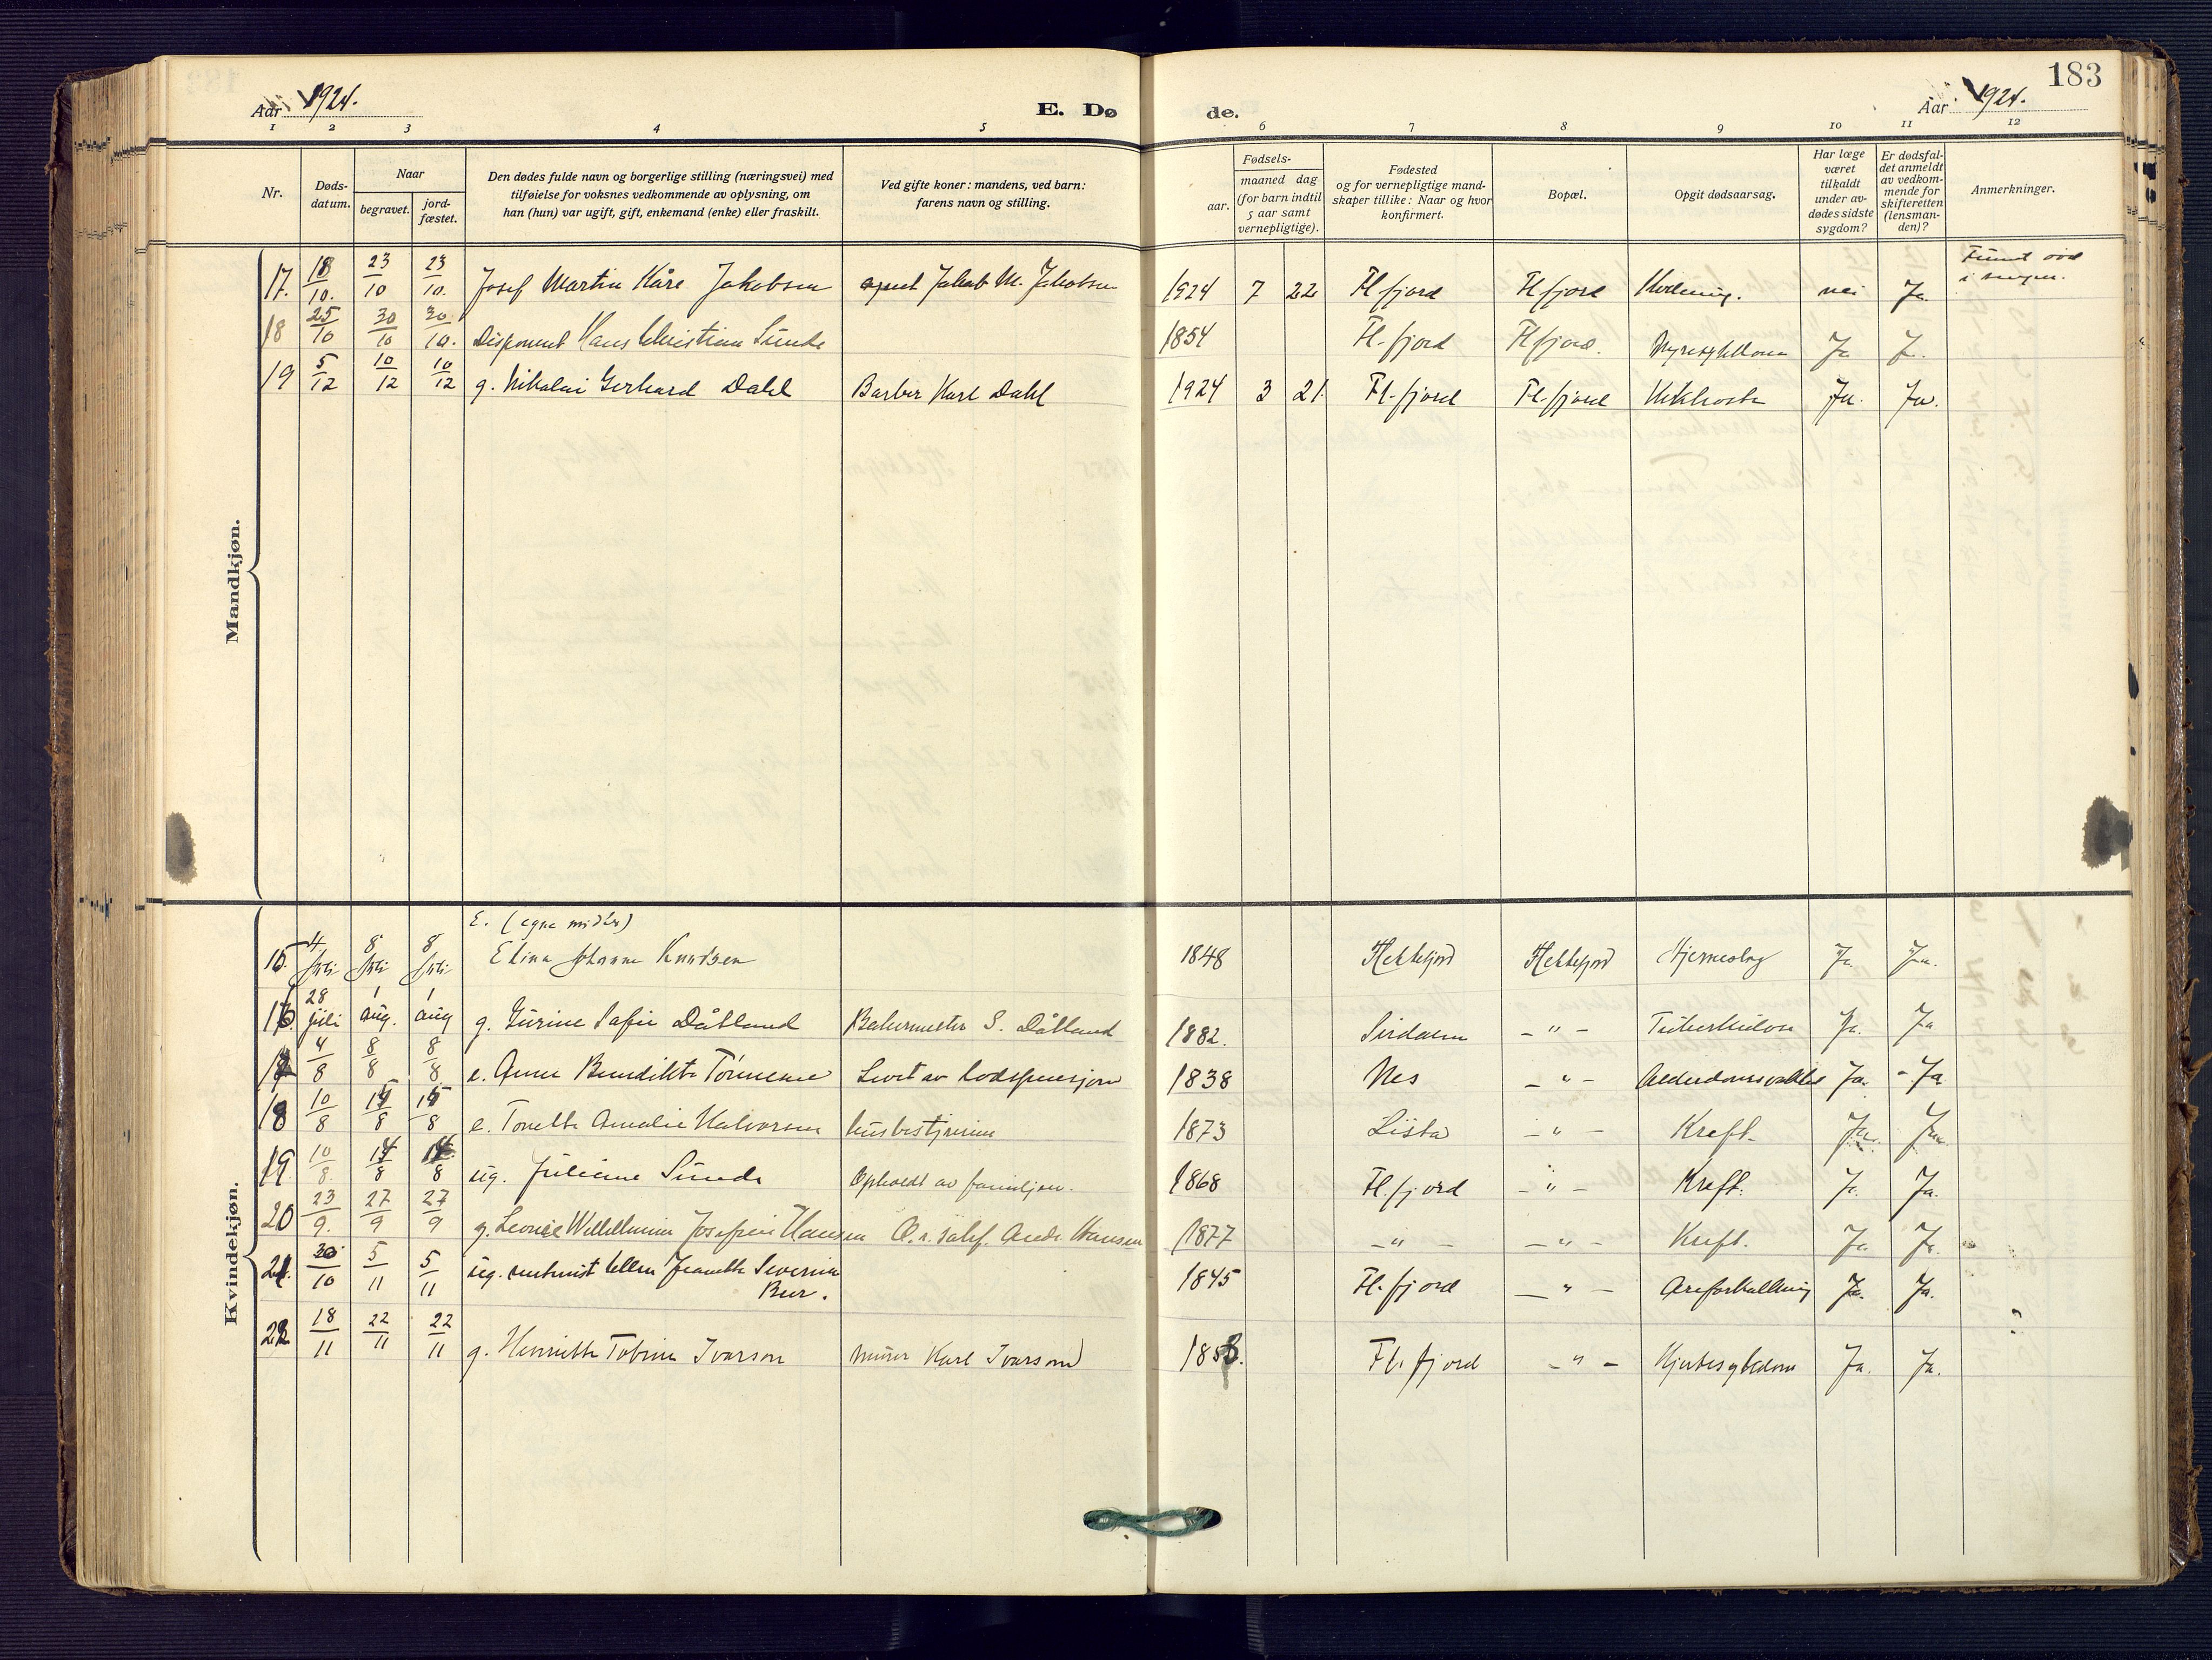 183
Aar 1924.
E. Dø
de.
Aar 1924.
1 2 3 4 5 6 7 8 9 10 11 12
Nr.
Døds-
datum.
Naar
begravet.
jord-
fæstet.
Den dødes fulde navn og borgerlige stilling (næringsvei) med
tilføielse for voksnes vedkommende av oplysning, om
han (hun) var ugift, gift, enkemand (enke) eller fraskilt.
Ved gifte koner: mandens, ved barn:
farens navn og stilling.
Fødsels-
aar.
maaned dag
(for barn indtil
5 aar samt
vernepligtige).
Fødested
og for vernepligtige mand-
skaper tillike: Naar og hvor
konfirmert.
Bopæl.
Opgit dødsaarsag.
Har læge
været
tilkaldt
under av-
dødes sidste
sygdom?
Er dødsfal-
det anmeldt
av vedkom-
mende for
skifteretten
(lensman-
den)?
Anmerkninger.
Mandkjøn.
17. 18/10. 23/10 23/10. Josef Martin Kåre Jakobsen agent Jakob M. Jakobsen 1924 7 22 Fl fjord Fl fjord Kvelning. nei Ja Fundt død i sengen.
18 25/10 30/10 30/10. Disponent Hans Christian Sunde 1854 Fl. fjord Fl fjord. Nyresykdom Ja Ja.
19 5/12 10/12 10/12 g. Nikolai Gerhard Dahl Barber Karl Dahl 1924 3 21. Fl. fjord Fl. fjord Kikhoste Ja. Ja.
Kvindekjøn.
E. (egne midler)
15. 4/juli 8/juli 8/juli Elina Johanne Knudsen 1848 Flekkefjord Flekkefjord Hjerneslag Ja. Ja.
16. 28 juli 1 aug. 1 aug g. Gurine Sofie Dåtland Bakermester S. Dåtland 1882. Sirdalen - " - Tuberkulose Ja. Ja
17 4/8 8/8 8/8 e. Anne Benedikte Tønnesen Levet av lodspensjon 1838 Nes - " - Alderdomssvakhet Ja. Ja
18 10/8 15/8 15/8 e. Tonette Amalie Halvorsen husbestyrerinne 1873 Lista - " - Kreft. Ja. Ja.
19. 10/8. 14/8 14/8 ug. Juliane Sunde Opholdt av familjen. 1868 Fl. fjord - " - Kreft. Ja. Ja.
20 23/9. 27/9 27/9 g. Leonie Willelmine Josefine Hansen Andr. Hansen 1877 - " - - " - Kreft. Ja Ja.
21. 30/10 5/11 5/11 ug. Ellen Jeanette Severine
Beer. 1845 Fl. fjord - " - Areforkalkning Ja. Ja.
22 18/11 22/11 22/11 g. Henriette Tobine Ivarson murer Karl Ivarson 1858. Fl. fjord - " - Hjertesykdom Ja. Ja.